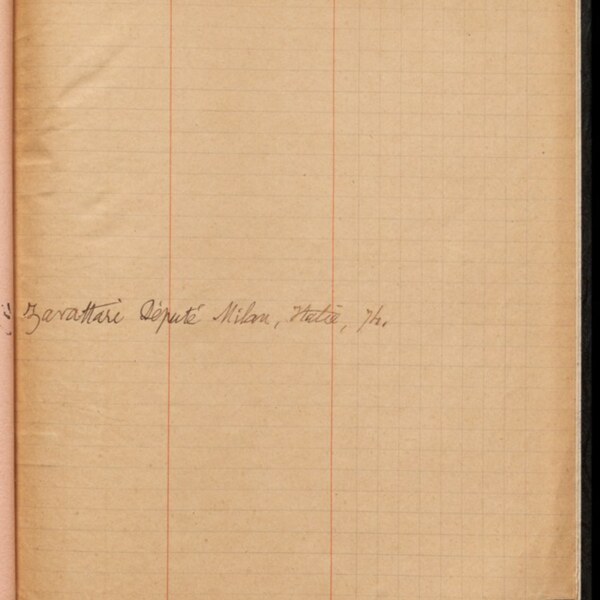 Zavattari Député Milan, Italie,